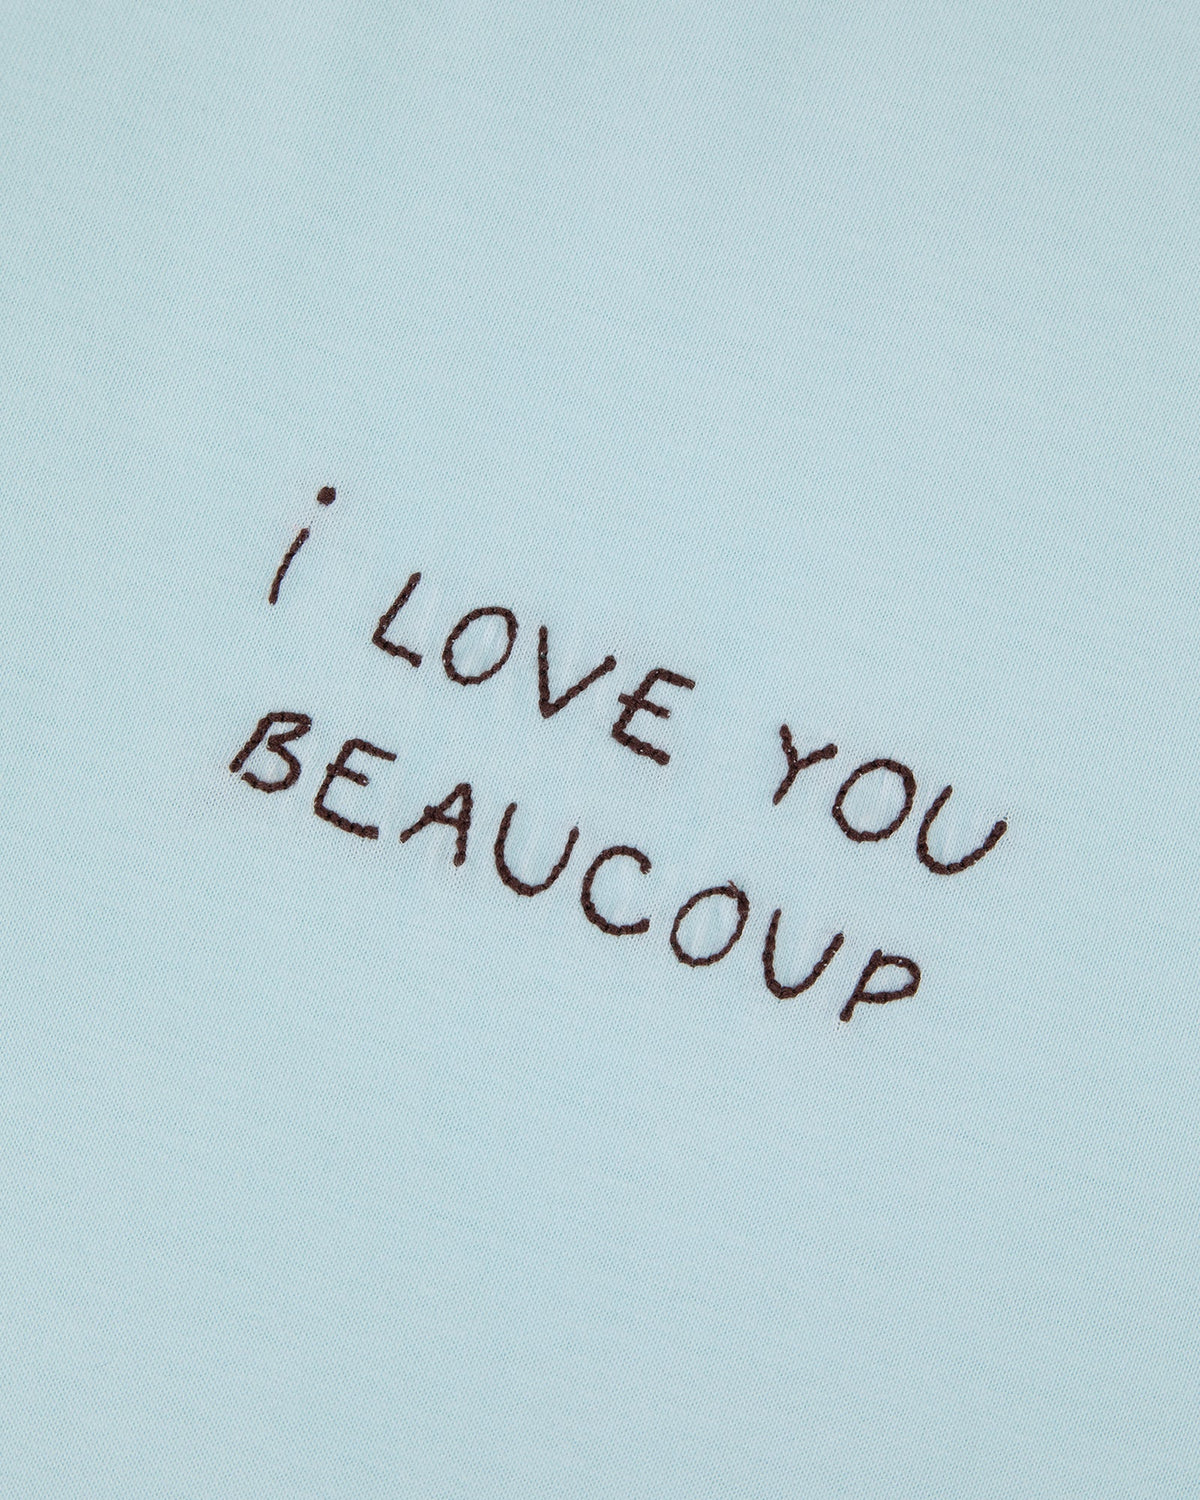 i LOVE YOU
BEAUCOUP